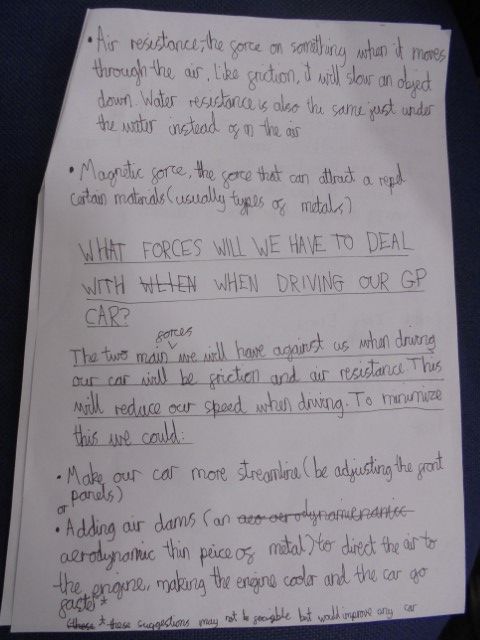 • Air resistance, the force on something when it moves
through the air, like friction, it will slow an object
down. Water resistance is also the same just under
the water instead of in the air
• Magnetic force, the force that can attract a repel
certain materials (usually types of metals)
WHAT FORCES WILL WE HAVE TO DEAL
WITH WHEN WHEN DRIVING OUR GP
CAR?
forces
The two main we will have against us when driving
our car will be friction and air resistance This
will reduce our speed when driving. To minimize
this we could:
• Make our car more streamline (be adjusting the front
or panels)
• Adding air dams (an aerodynamic
aerodynamic thin peice of metal) to direct the air to
the engine, making the engine cooler and the car go
faster*
these * these suggestions may not be feasible but would improve any car